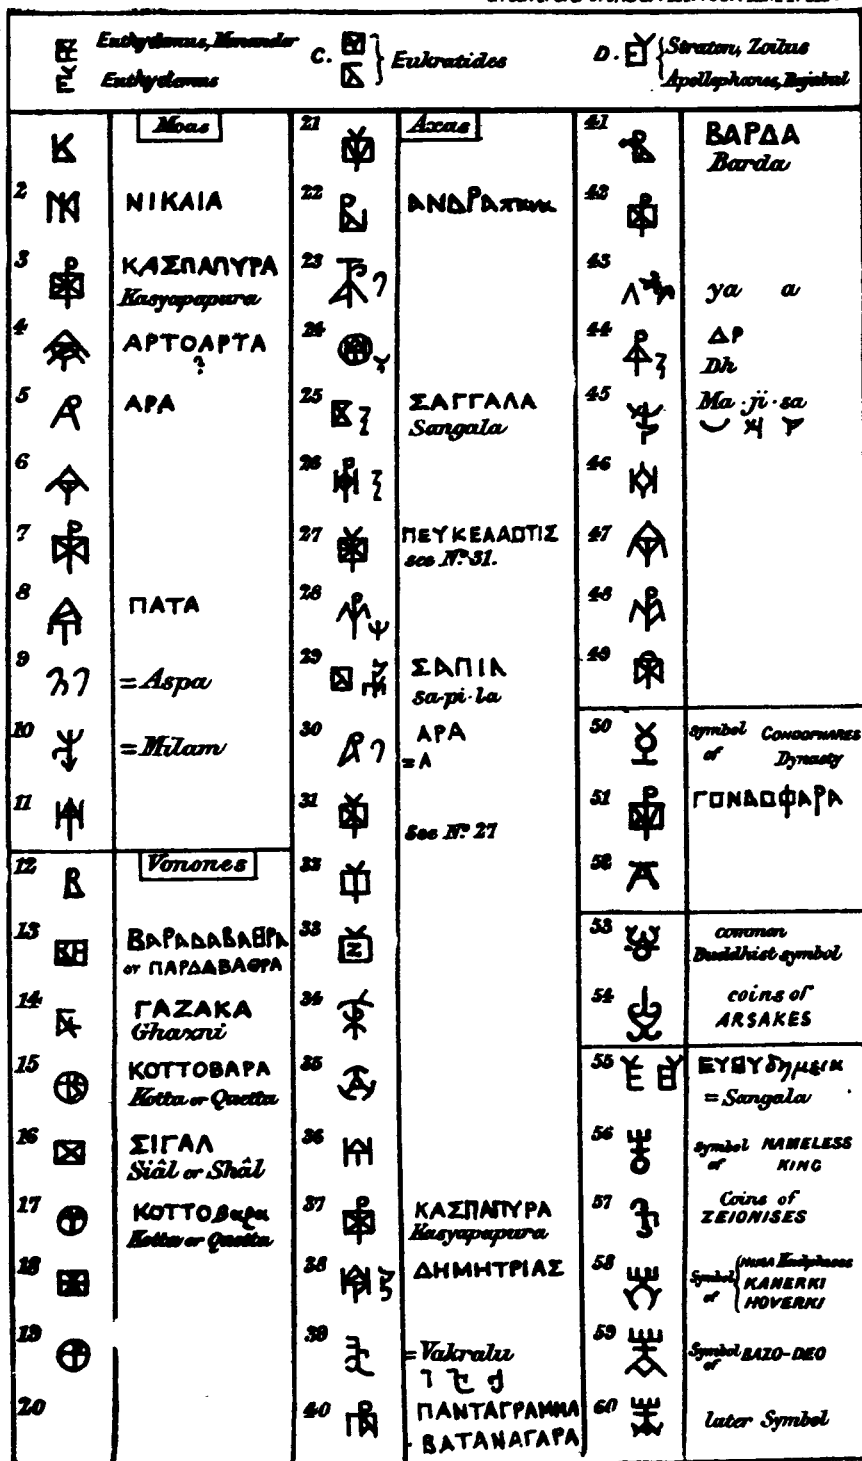 Euthydemus, Menander
Euthydemus
C. Eukratides
D. Straton, Zoilus
Apollophanes,
Moas
2 ΝΙΚΑΙΑ
3 ΚΑΣΠΑΠΥΡΑ
Kasyapapura
4 ΑΡΤΟΑΡΤΑ
?
5 ΑΡΑ
6
7
8 ΠΑΤΑ
9 = Aspa
10 = Milam
11
12 Vonones
13 ΒΑΡΑΔΑΒΑΘΡΑ
or ΠΑΡΔΑΒΑΘΡΑ
14 ΓΑΖΑΚΑ
Ghazni
15 ΚΟΤΤΟΒΑΡΑ
Kotta or Quetta
16 ΣΙΓΑΛ
Siâl or Shâl
17 ΚΟΤΤΟβαρα
Kotta or Quetta
18
19
20
21 Azas
22 ΑΝΔΡΑπανα
23
24
25 ΣΑΓΓΑΛΑ
Sangala
26
27 ΠΕΥΚΕΛΑΩΤΙΣ
see Nº 31.
28
29 ΣΑΠΙΛ
sa·pi·la
30 ΑΡΑ
= Α
31 see Nº 27
32
33
34
35
36
37 ΚΑΣΠΑΠΥΡΑ
Kasyapapura
38 ΔΗΜΗΤΡΙΑΣ
39 = Vakralu
40 ΠΑΝΤΑΓΡΑΜΜΑ
ΒΑΤΑΝΑΓΑΡΑ
41 ΒΑΡΔΑ
Barda
42
43 ya a
44 ΔΡ
Dh
45 Ma·ji·sa
46
47
48
49
50 symbol of GONDOPHARES
Dynasty
51 ΓΟΝΔΟΦΑΡΑ
52
53 common
Buddhist symbol
54 coins of
ARSAKES
55 ΕΥΘΥδημεια
= Sangala
56 symbol of NAMELESS
KING
57 Coins of
ZEIONISES
58 Symbol of Kadphises
KANERKI
HOVERKI
59 Symbol of BAZO-DEO
60 later Symbol